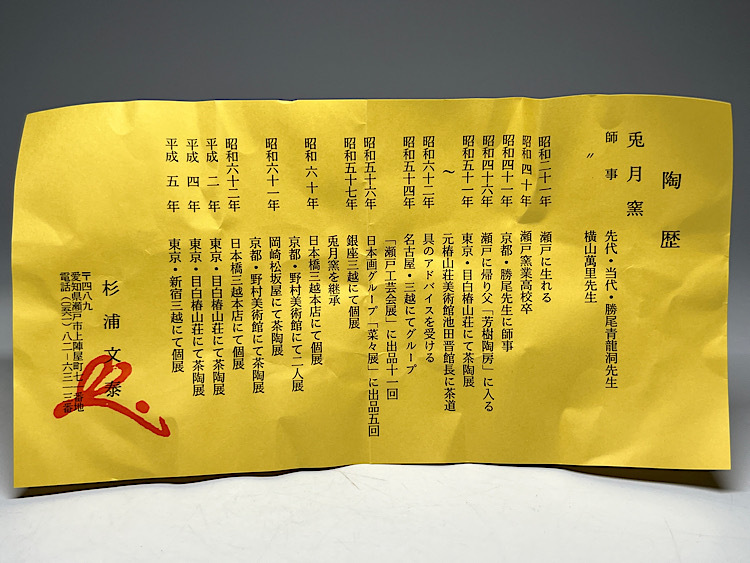 陶歴
兎月窯
師事　先代・当代・勝尾青龍洞先生
〃　横山萬里先生
昭和二十一年　瀬戸に生れる
昭和四十年　瀬戸窯業高校卒
昭和四十一年　京都・勝尾先生に師事
昭和四十六年　瀬戸に帰り父「芳樹陶房」に入る
昭和五十一年　東京・目白椿山荘にて茶陶展
〜　元椿山荘美術館池田晋館長に茶道
昭和六十二年　具のアドバイスを受ける
昭和五十四年　名古屋・三越にてグループ
「瀬戸工芸会展」に出品十一回
昭和五十六年　日本画グループ「菜々展」に出品五回
昭和五十七年　銀座三越にて個展
兎月窯を継承
昭和六十年　日本橋三越本店にて個展
京都・野村美術館にて二人展
昭和六十一年　岡崎松坂屋にて茶陶展
京都・野村美術館にて茶陶展
昭和六十二年　日本橋三越本店にて個展
平成二年　東京・目白椿山荘にて茶陶展
平成四年　東京・目白椿山荘にて茶陶展
平成五年　東京・新宿三越にて個展
杉浦文泰
〒四八九
愛知県瀬戸市上陣屋町七一番地
電話（〇五六一）八二－六三一三番